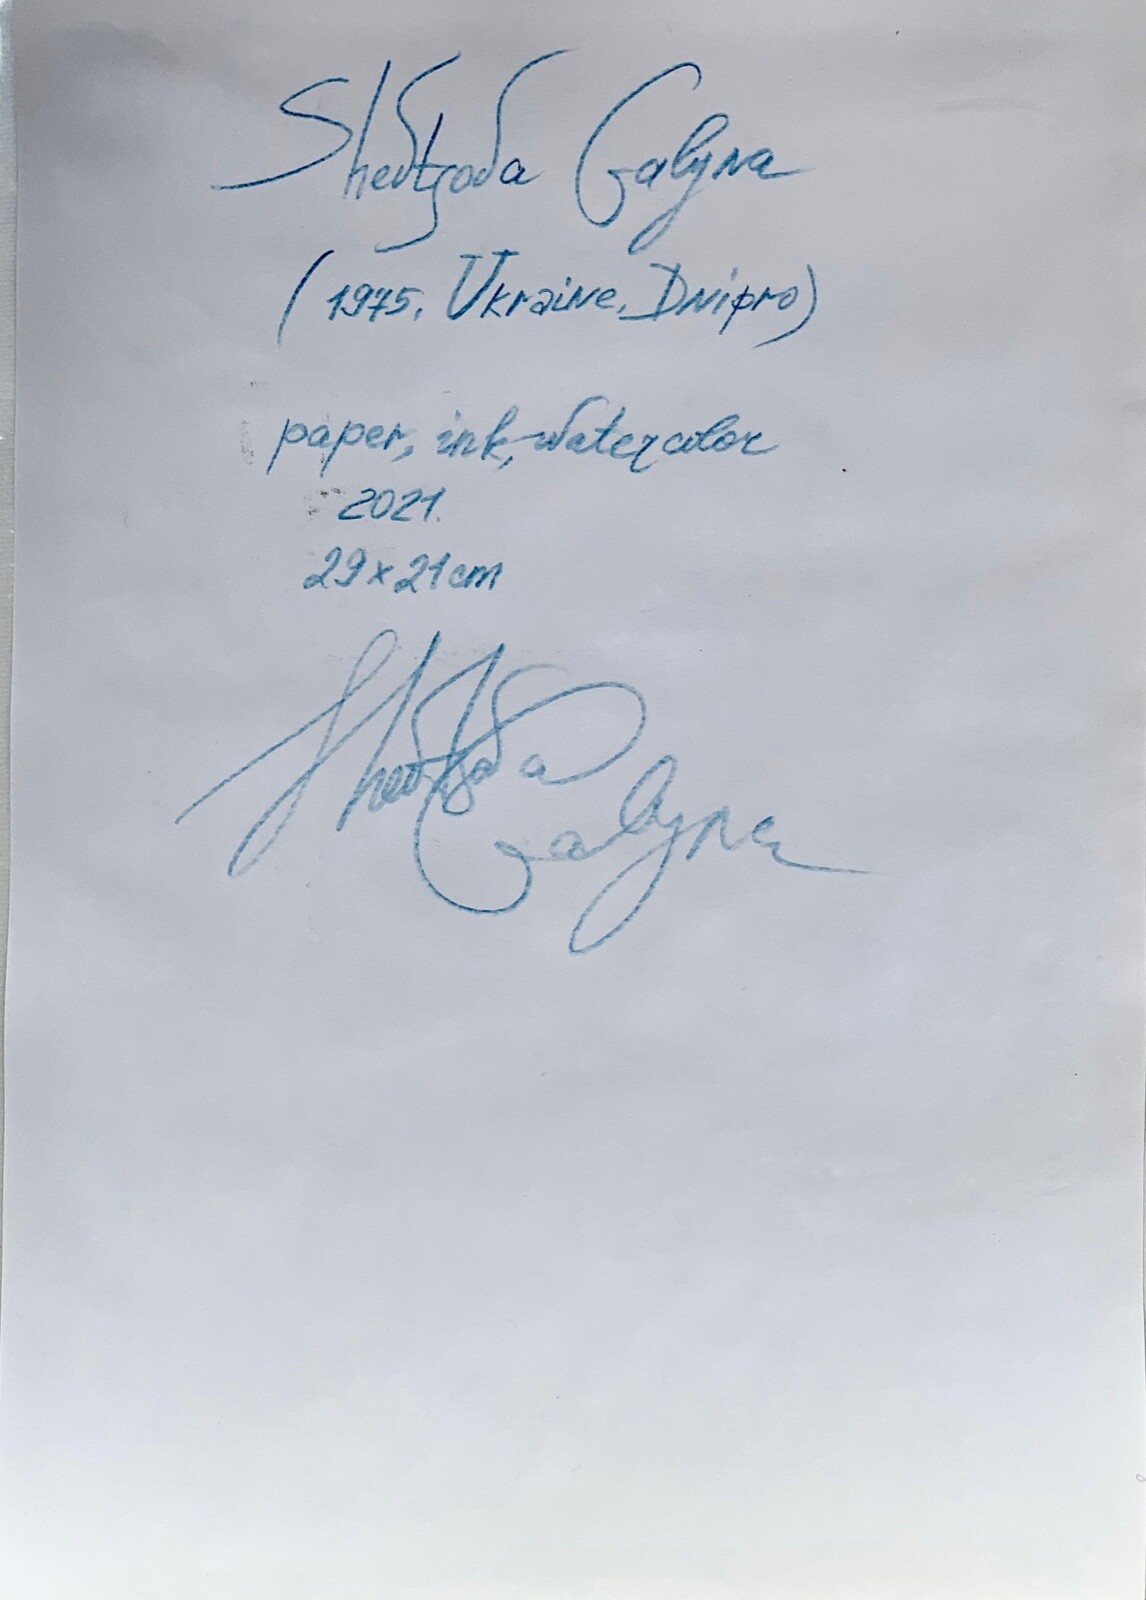 Shevtsova Galyna
(1975, Ukraine, Dnipro)
paper, ink, watercolor
2021.
29x21cm
Shevtsova
Galyna